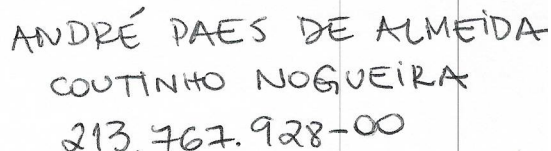 ANDRÉ PAES DE ALMEIDA
COUTINHO NOGUEIRA
213.767.928-00